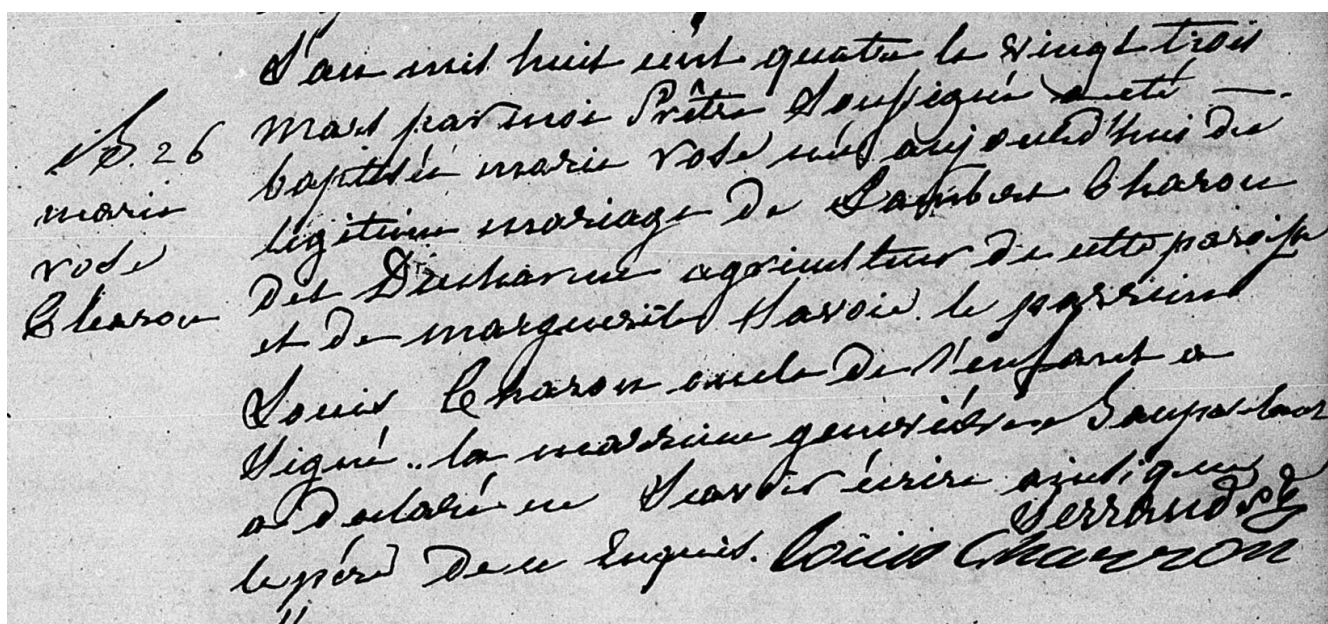 B. 26
marie
rose
Charon
L'an mil huit cent quatre le vingt trois
Mars par moi Prêtre Soussigné a eté —
baptisée marie rose née aujourd'hui du
legitime mariage de Lambert Charon
dit Ducharme agriculteur de cette paroisse
et de marguerite Savoie. le parrain
Louis Charon oncle de l'enfant a
Signé .. la marraine geneviéve
a declaré ne Savoir écrire ainsi que
le péré de ce Enquis. Louis Charron